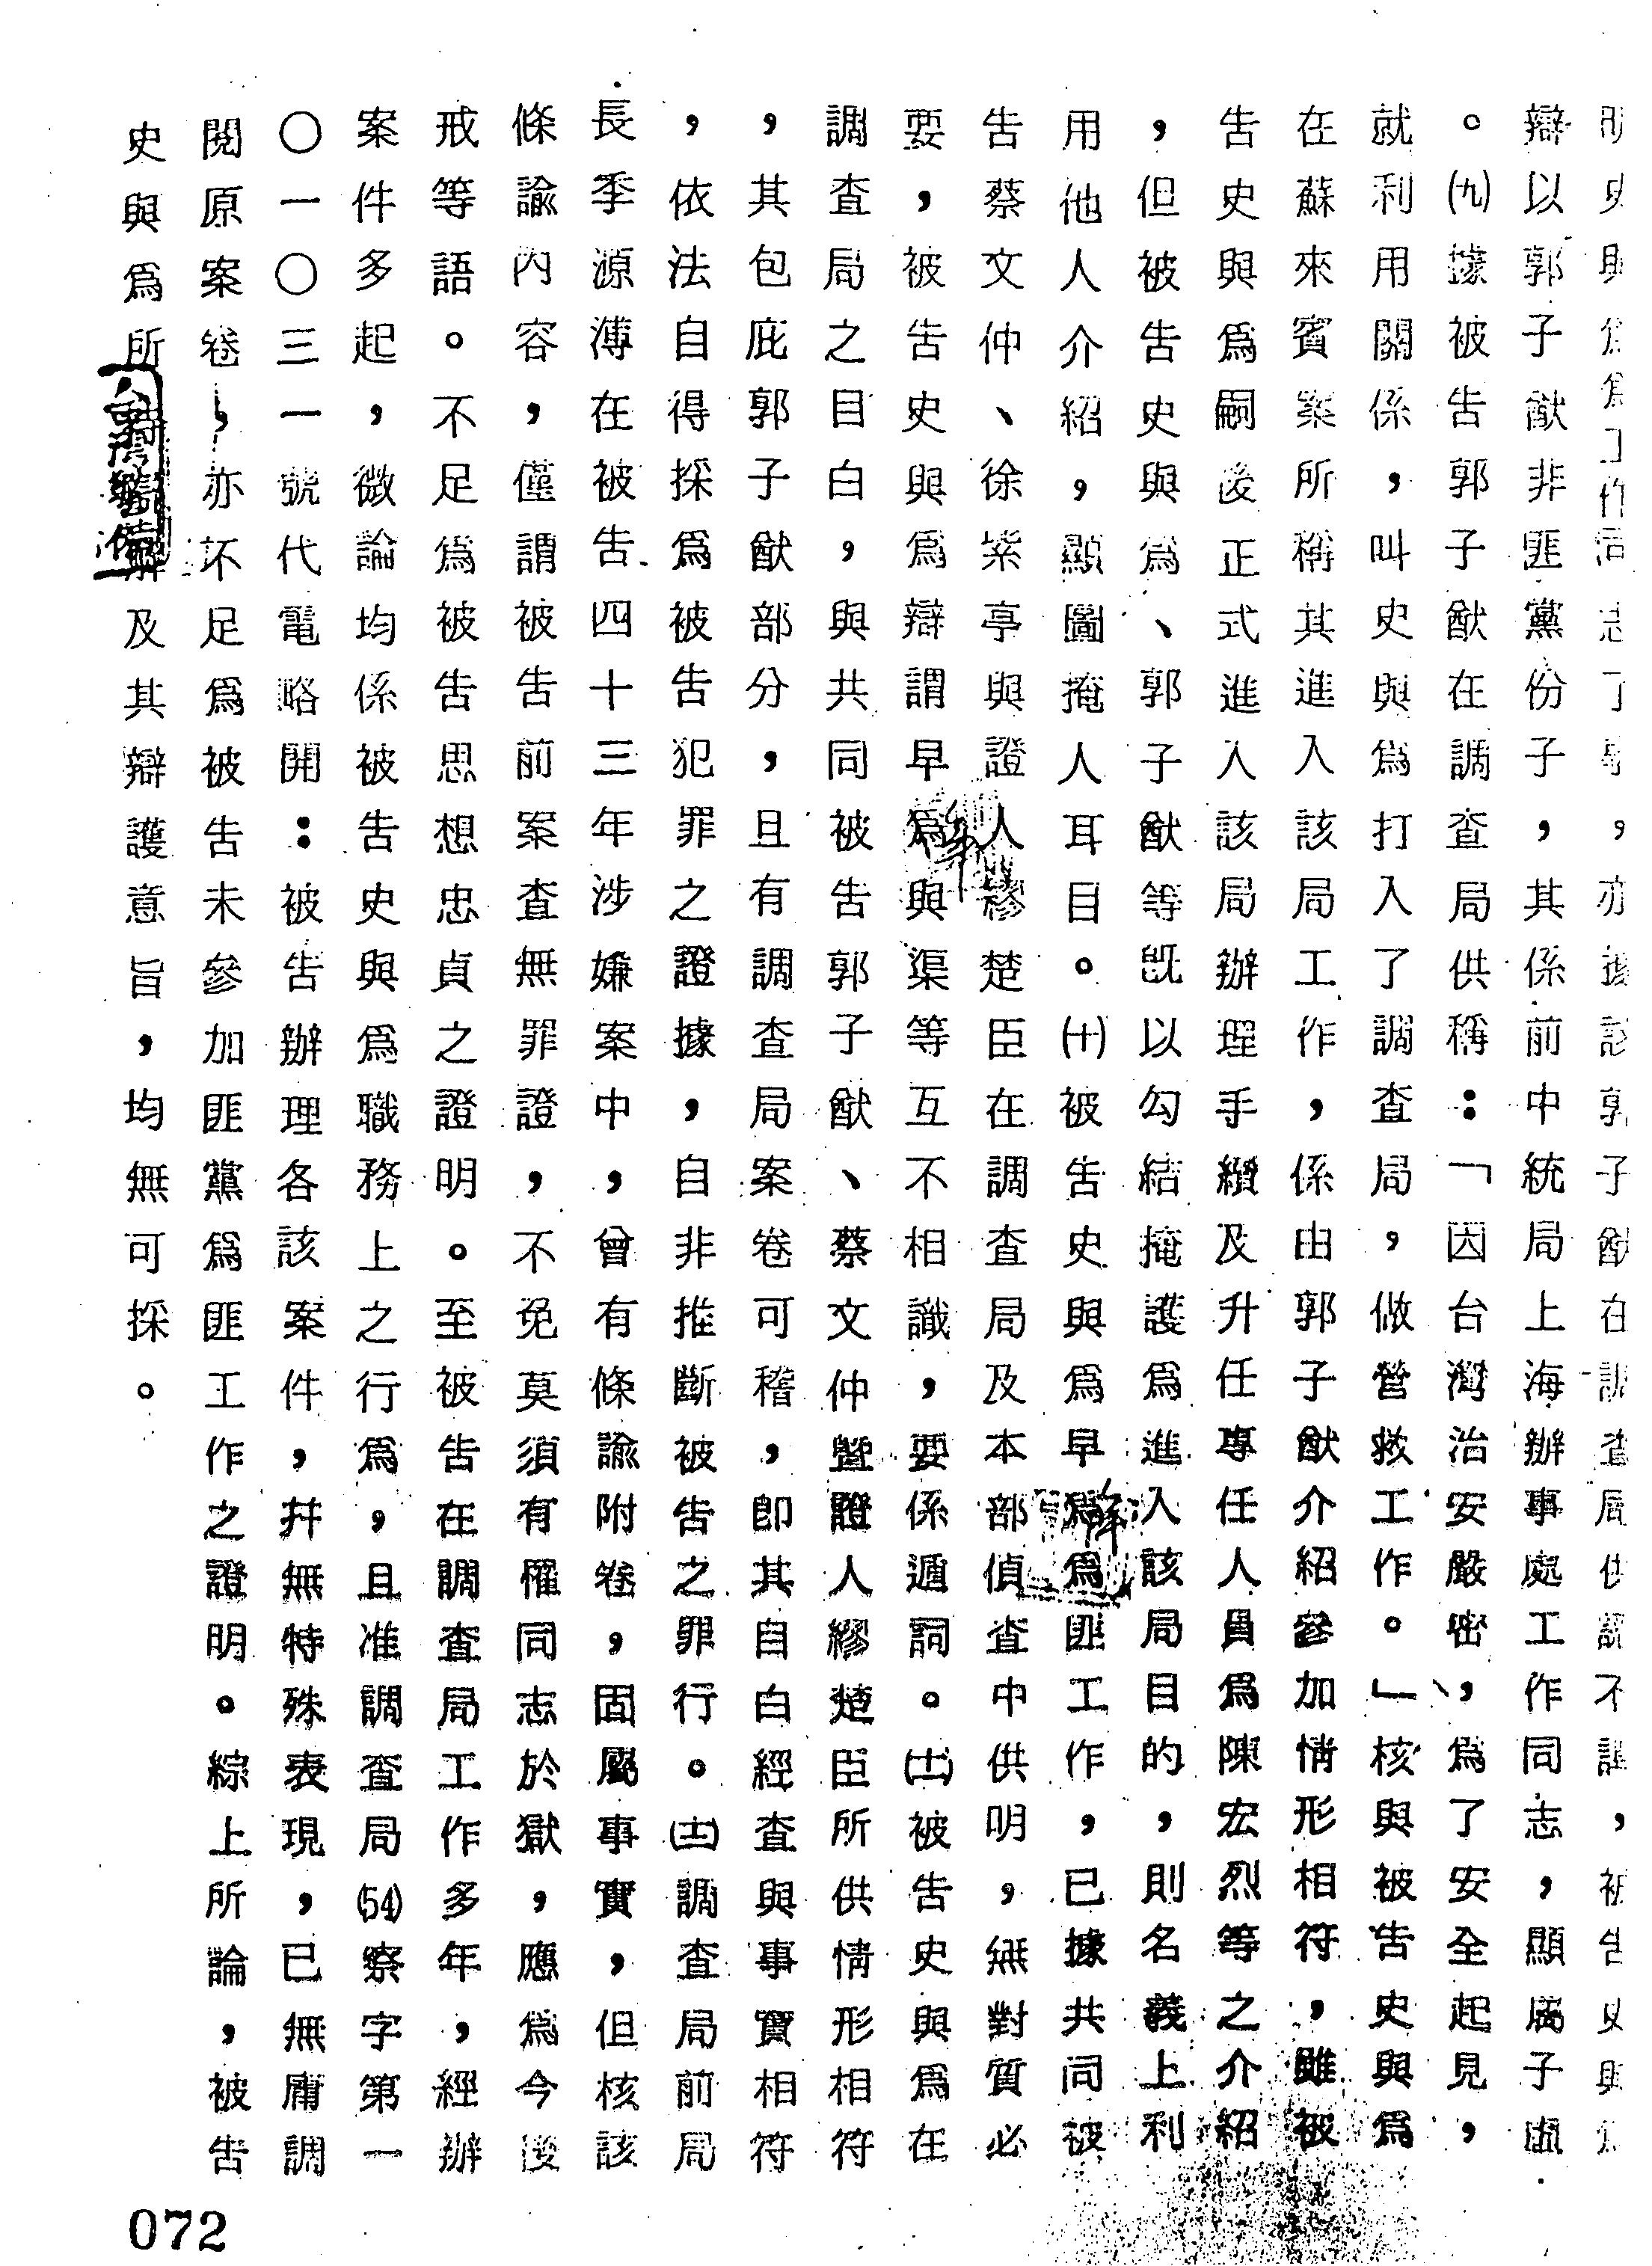 明史與爲爲工作同志了事，亦據該郭子猷在調查局供認不諱，被告史與爲
辯以郭子猷非匪黨份子，其係前中統局上海辦事處工作同志，顯屬子虛
。㈨據被告郭子猷在調查局供稱：「因台灣治安嚴密，爲了安全起見，
就利用關係，叫史與爲打入了調查局，做營救工作。」核與被告史與爲
在蘇來賓案所稱其進入該局工作，係由郭子猷介紹參加情形相符，雖被
告史與爲嗣後正式進入該局辦理手續及升任專任人員爲陳宏烈等之介紹
，但被告史與爲、郭子猷等旣以勾結掩護爲進入該局目的，則名義上利
用他人介紹，顯圖掩人耳目。㈩被告史與爲早爲爲匪工作，已據共同被
告蔡文仲、徐紫亭與證人繆楚臣在調查局及本部偵查中供明，無對質必
要，被告史與爲辯謂早爲與渠等互不相識，要係遁詞。(十一)被告史與爲在
調查局之目白，與共同被告郭子猷、蔡文仲，曁證人繆楚臣所供情形相符
，其包庇郭子猷部分，且有調查局案卷可稽，卽其自白經查與事實相符
，依法自得採爲被告犯罪之證據，自非推斷被告之罪行。(十二)調查局前局
長季源溥在被告四十三年涉嫌案中，曾有條諭附卷，固屬事實，但核該
條諭內容，僅謂被告前案查無罪證，不免莫須有罹同志於獄，應爲今後
戒等語。不足爲被告思想忠貞之證明。至被告在調查局工作多年，經辦
案件多起，微論均係被告史與爲職務上之行爲，且准調查局(54)察字第一
〇一〇三一號代電略開：被告辦理各該案件，幷無特殊表現，已無庸調
閱原案卷，亦不足爲被告未參加匪黨爲匪工作之證明。綜上所論，被告
史與爲所辯及其辯護意旨，均無可採。
072